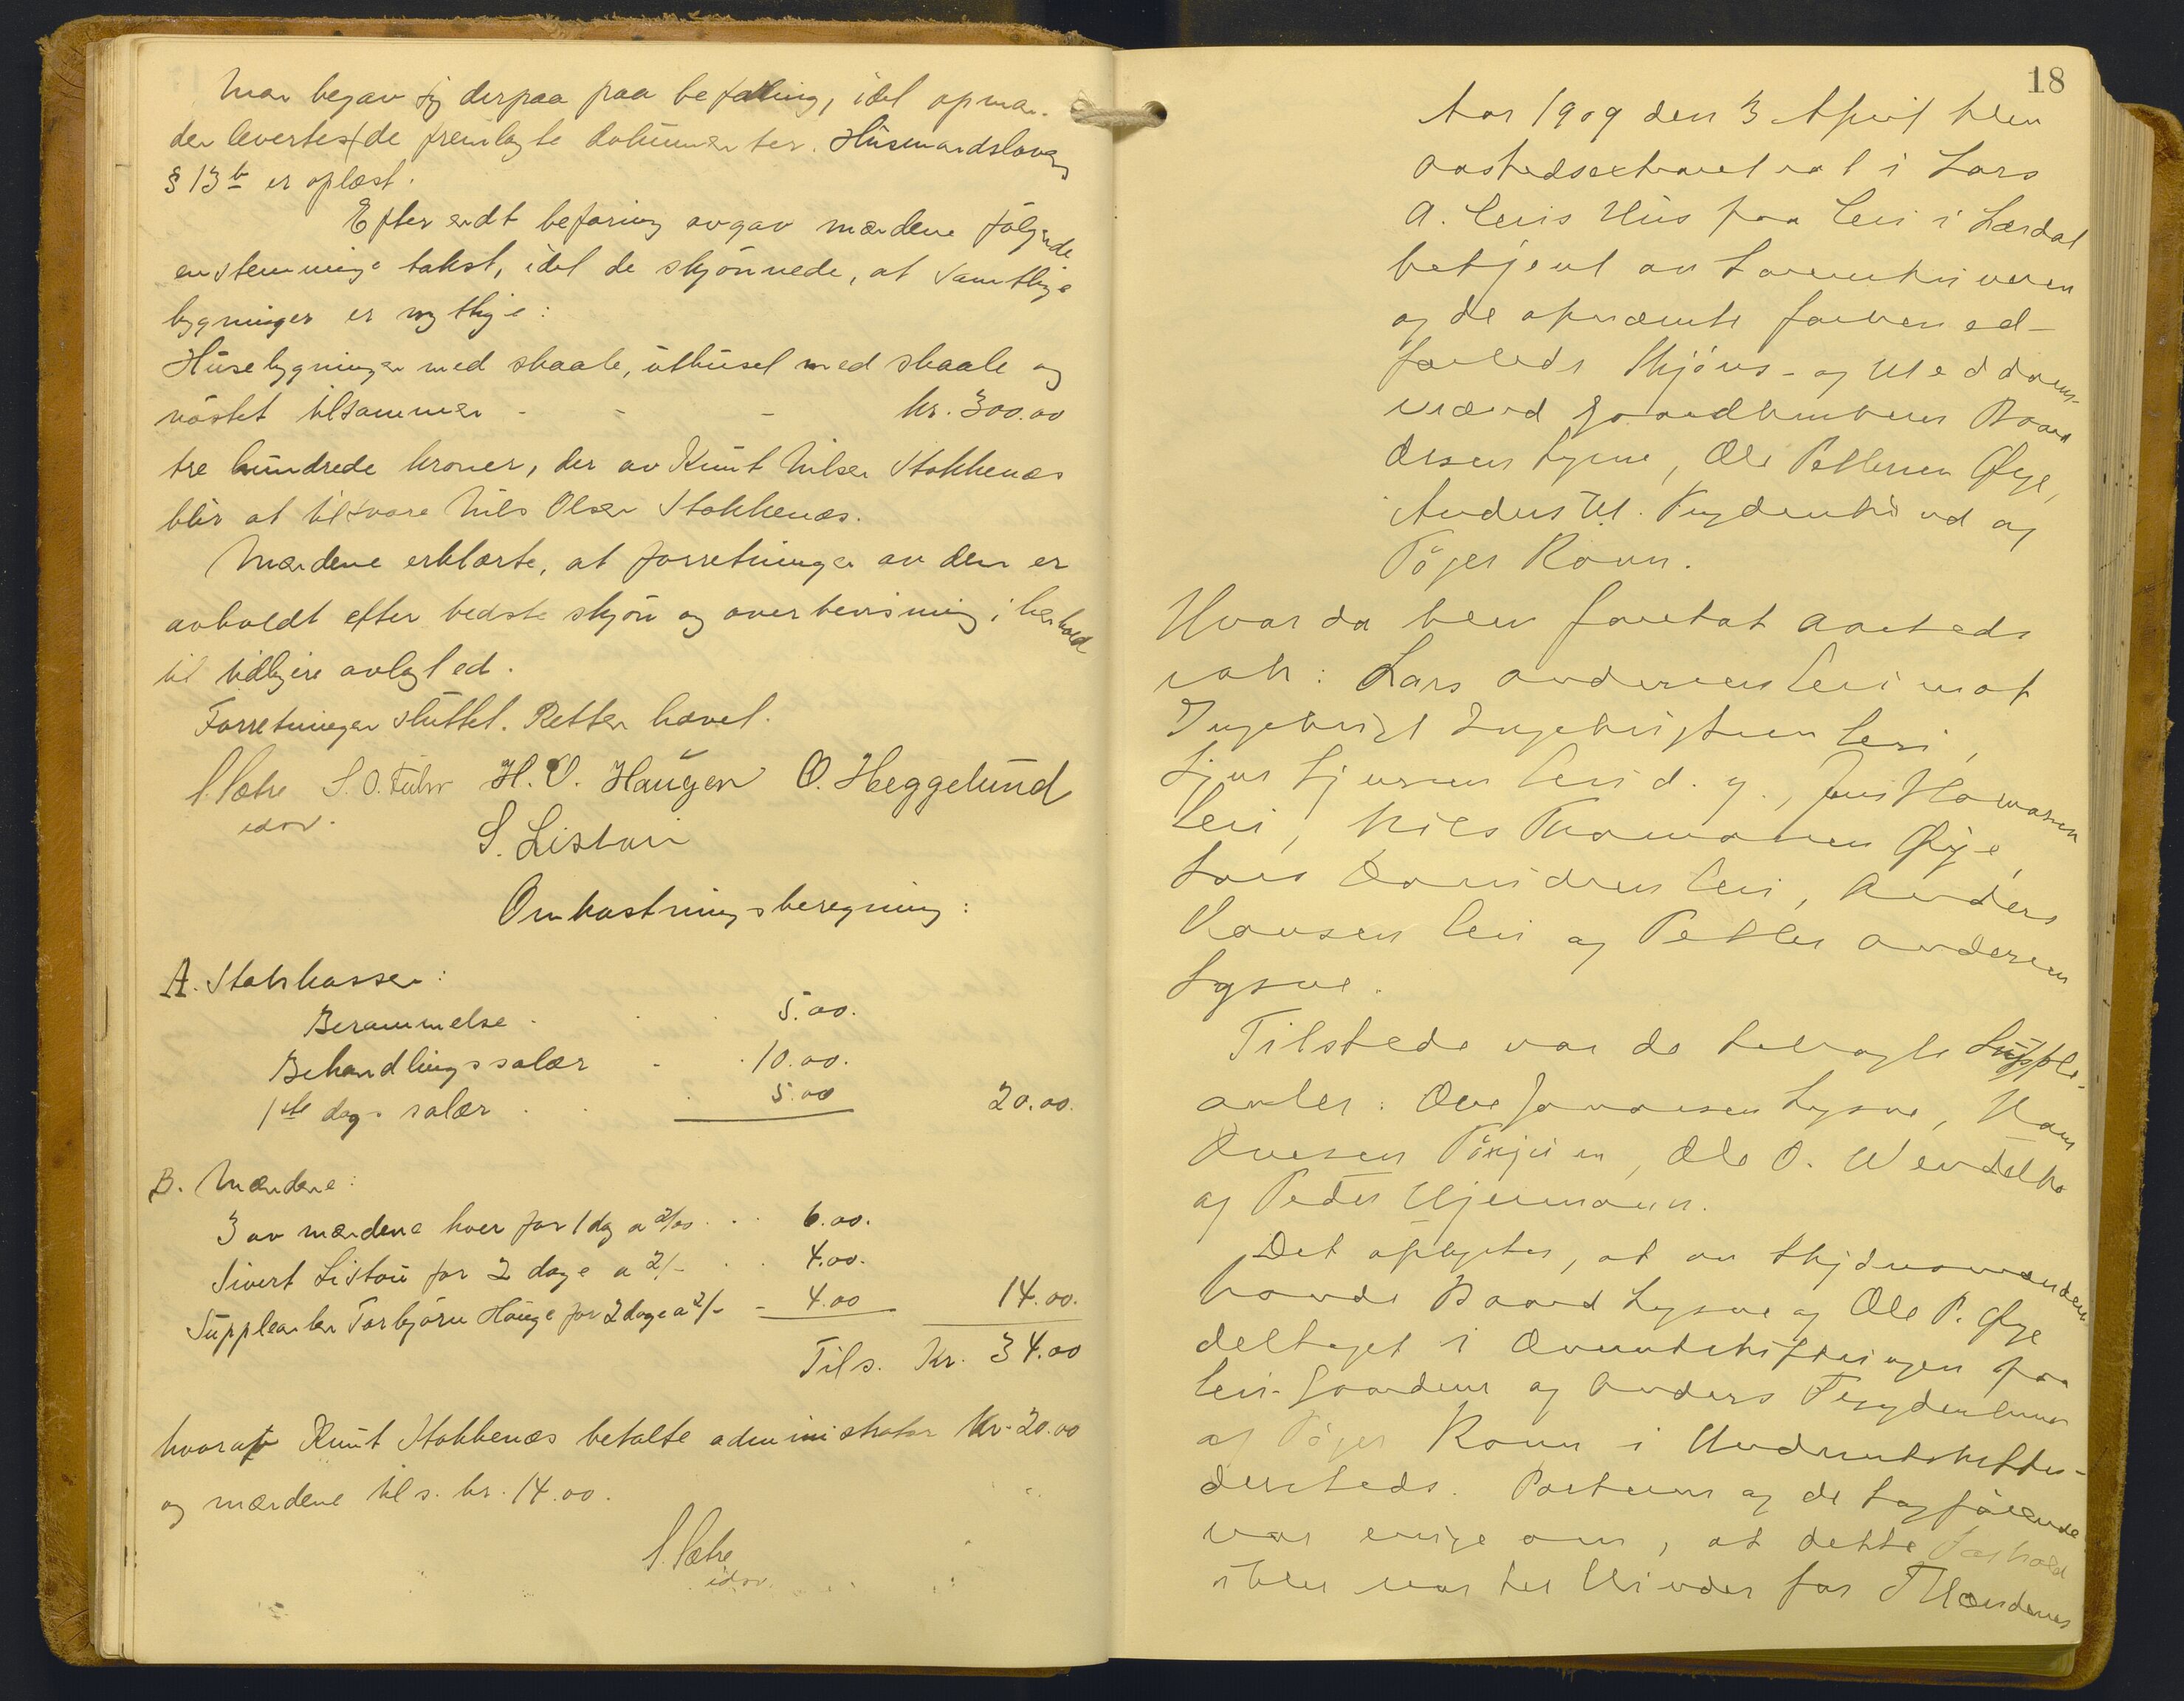 Man begav sig derpaa paa befaring, idet opman-
den levertes de fremlagte dokumenter. Husmandslovens
§ 13 b er oplæst.
Efter endt befaring avgav mændene følgende
enstemmige takst, idet de skjønnede, at samtlige
bygninger er nyttige:
Husebygningen med skaale, uthuset med skaale og
nøstet tilsammen - - - kr. 300.00
tre hundrede kroner, der av Knut Nilsen Stokkenæs
blir at tilsvare Nils Olsen Stokkenæs.
Mændene erklærte, at forretningen av dem er
avholdt efter bedste skjøn og overbevisning i henhold
til tidligere avlagt ed.
Forretningen sluttet. Retten hævet.
S. O. Fuhr H. O. Haugen O. Heggelund
S. Listou
Omkostningsberegning:
A. Statskassen:
Berammelse . . . 5.00.
Behandlingssalær - . 10.00.
1ste dags salær . . . 5.00 20.00.
B. Mændene:
3 av mændene hver for 1 dag a 2/00 . . . 6.00.
Sivert Listou for 2 dage a 2/- . . 4.00.
Suppleanten Torbjørn Hauge for 2 dage a 2/- - 4.00 14.00.
Tils. Kr. 34.00
hvorav Knut Stokkenæs betalte administrator Kr. 20.00
og mændene tils. kr. 14.00.
18
Aar 1909 den 3 April blev
aastedsextraret sat i Lars
A. Eris Hus paa Eri i Lærdal
betjent av Sorenskriveren
og de opnævnte forben ed-
fæstede Skjøns- og Meddoms-
mænd Gaardbrukerne Baard
Lysne, Ole Pettersen Øye,
Anders M. og
Tøger Roum.
Hvor da blev foretat aasteds
sak: Lars Andersen Eri mot
Ingebrigt Ingebrigtsen Eri,
Sjur Sjursen Eri d. y., Jens Hansen
Eri, Nils Thomassen Øye,
Lars Eri, Anders
Hansen Eri og Petter Andersen
Lysne.
Tilstede var de tilsagte Supple-
anter: Ole Johannesen Lysne, Hans
Ole O. Wendelbo
og Peder Hjermann.
Det oplystes, at av Skjønsmændene
havde Baard Lysne og Ole P. Øye
deltaget i Utskiftningen paa
Eri-Gaardene og Anders
og Tøger Roum i Underutskiften
dersteds. Parterne og de Sagførende
var enige om, at dette Forhold
ikke var til Hinder for Mændenes